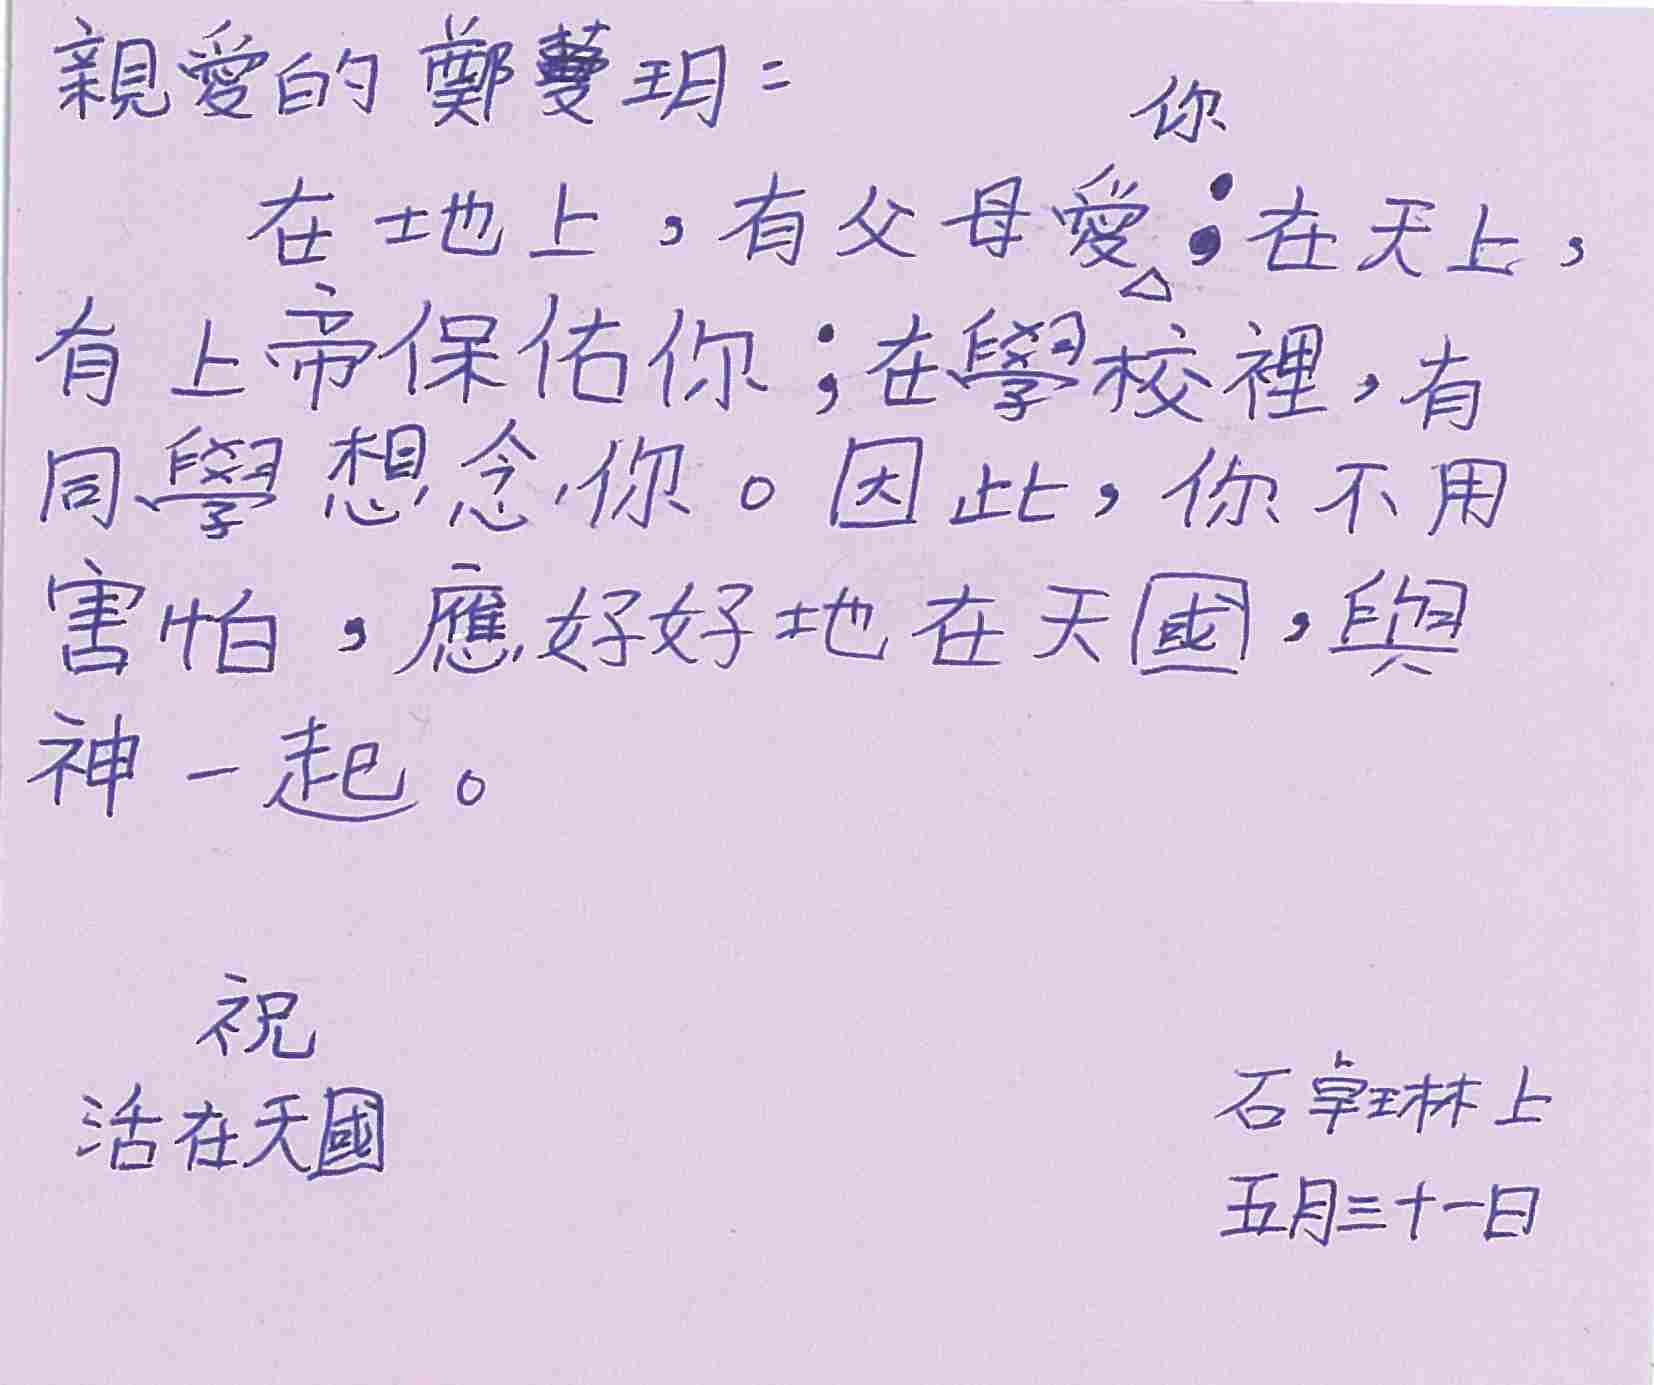 親愛的鄭蔓玥：
在地上，有父母愛你；在天上，
有上帝保佑你；在學校裡，有
同學想念你。因此，你不用
害怕，應好好地在天國，與
神一起。
祝
活在天國
石卓琳上
五月三十一日